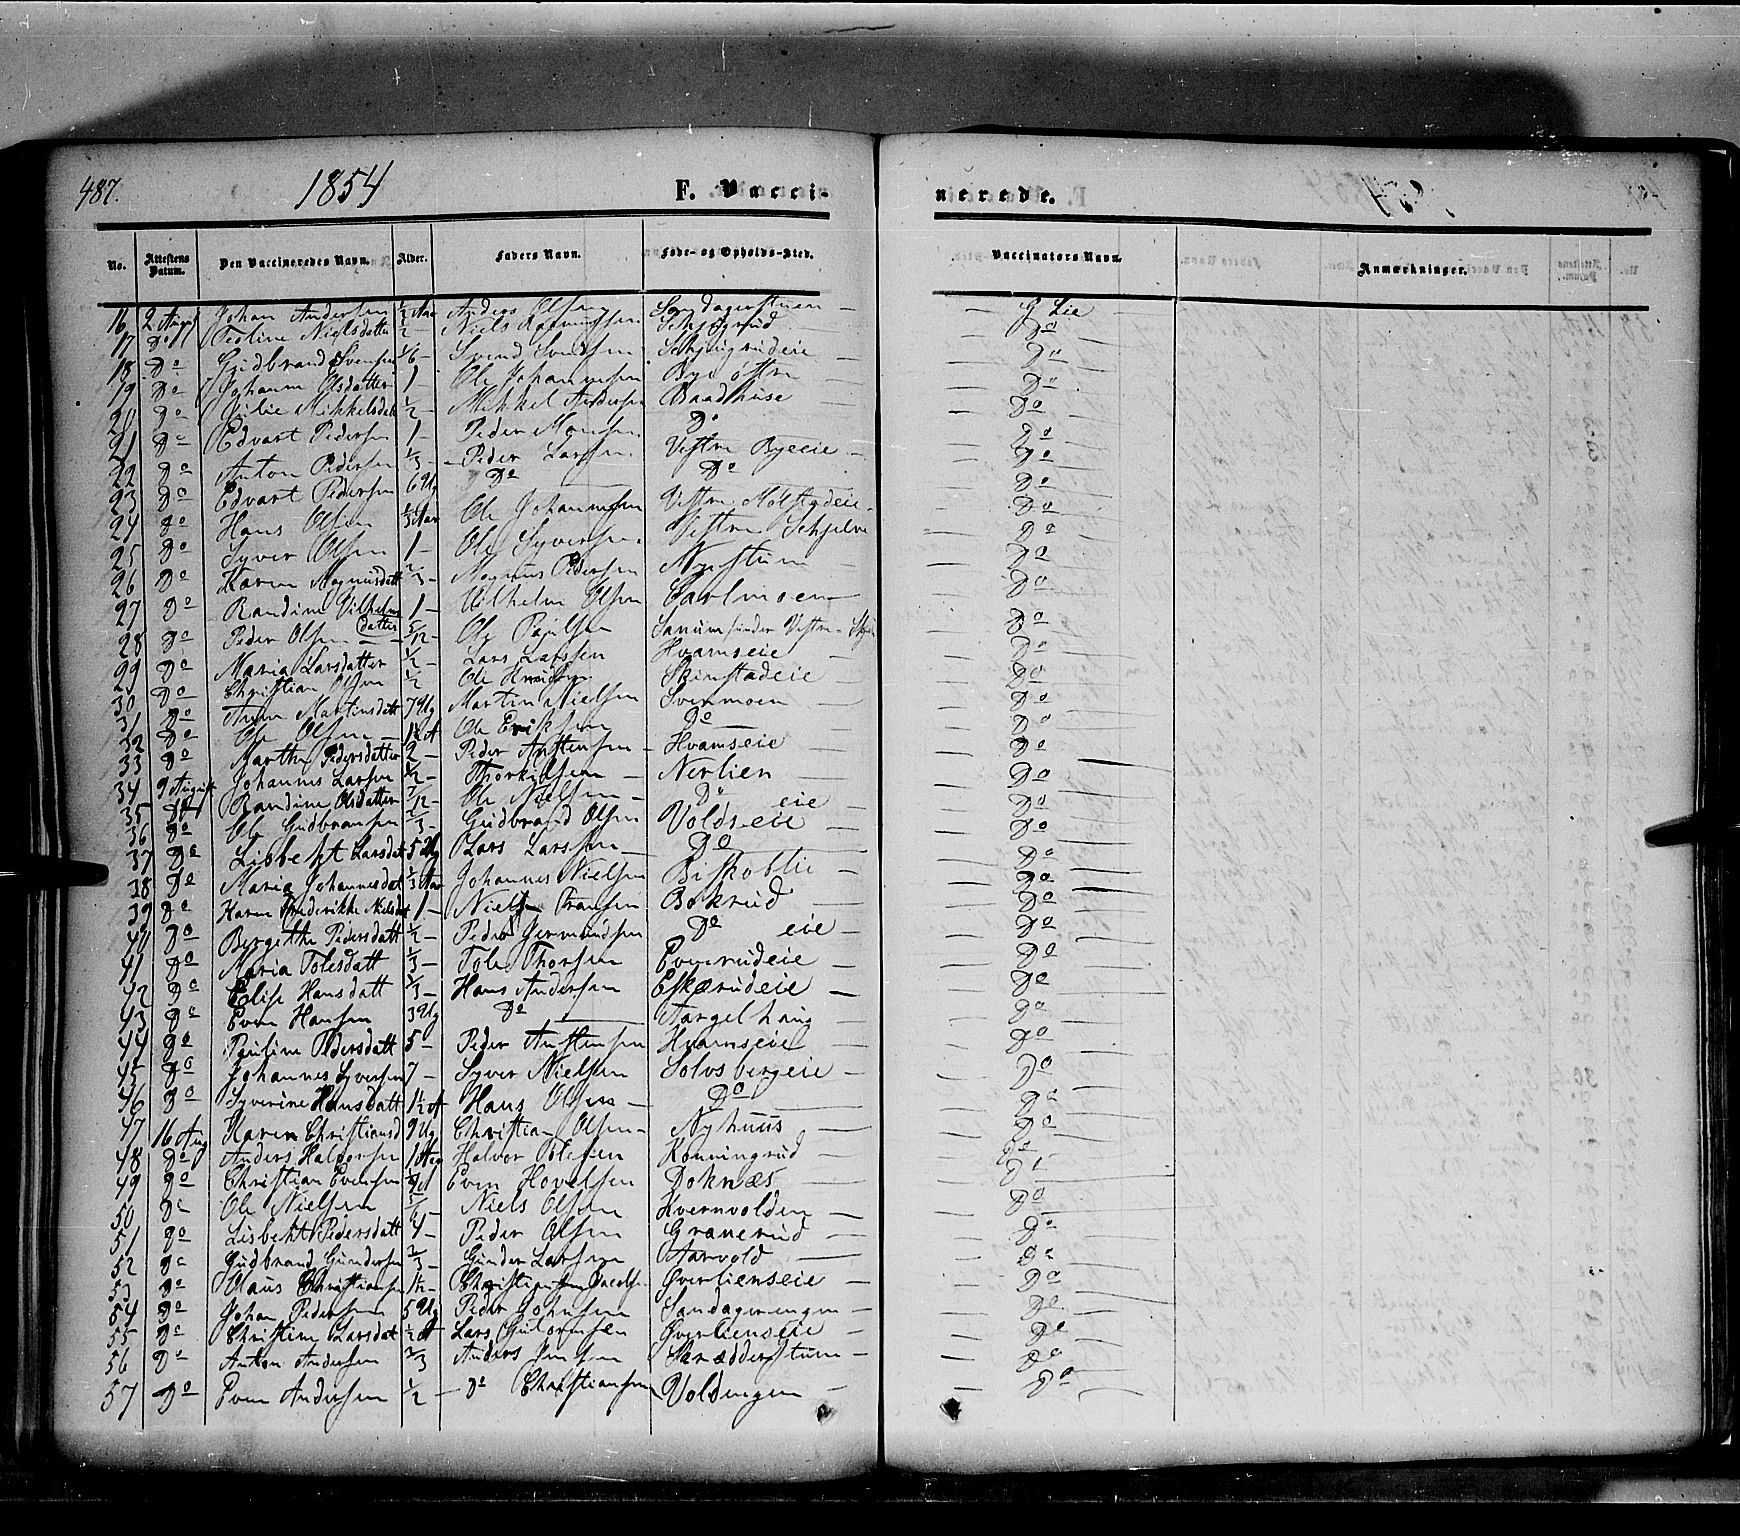 487. 1854 F. Vacci- nerede.
No. Attestens Datum. Den Vaccineredes Navn. Alder. Faders Navn. Føde- og Opholds-Sted. Vaccinators Navn. Anmærkninger.
16 2 Aug Johan Andersen ½ Aar Anders Olsen — G Lie
17 Do Nielsdatter ½ — Niels Do
18 Do Gudbrand Svensen 1/6 — Svend Svendsen — Do
19 Do Johanne Olsdatter 1 — Ole Johannesen Bye østre — Do
20 Do Julie Mikkelsdatt ½ — Mikkel Andersen Baadhuse — Do
21 Do Edvart Pedersen 1 — Peder Monsen Do — Do
22 Do Anton Pedersen ⅓ — Peder Larsen Vestre Byeeie — Do
23 Do Edvart Pedersen 6 Ug Do Do — Do
24 Do Hans Olsen ⅓ Aar Ole Johannesen Vestre Mølstadeie — Do
25 Do Syver Olsen 1 — Ole Syversen Vestre Schjelve — Do
26 Do Karen Magnusdatt ⅔ — Magnus Pedersen Nystuen — Do
27 Do Randine Vilhelmsdatter 1 — Vilhelm Olsen — Do
28 Do Peder Olsen 5/12 — Ole Sanum under Vestre — Do
29 Do Maria Larsdatter ½ — Lars Larsen Hvamseie — Do
30 Do Christian Olsen ½ Ole Skinstadeie — Do
31 Do Anne Martinsdatt 7 Ug Martin Nielsen Svenmoen — Do
32 Do Ole Olsen — 1½ A Ole Eriksen Do — Do
33 Do Marthe Pedersdatter 2 — Peder Anstensen — Hvamseie — Do
34 9 August Johannes Larsen ½ — Thorkilsen — Nerlien — Do
35 Do Randine Olsdatter 7/12 — Ole Nielsen — Do eie — Do
36 Do Ole Gudbransen ⅔ — Gudbrand Olsen Voldseie — Do
37 Do Lisbeht Larsdat 5 Ug Lars Larsen — Do — Do
38 Do Maria Johannesdat ⅓ Aar Johannes Nielsen Biskoblie — Do
39 Do Karen Frederikke Nielsdat 1 — Niels Fransen Bokrud — Do
40 Do Bergithe Pedersdatt ½ — Peder Germundsen Do eie — Do
41 Do Maria Tolesdatt ⅓ — Tole Thorsen Evenrudeie — Do
42 Do Elise Hansdatt ⅓ — Hans Andersen Eskerudeie — Do
43 Do Even Hansen 3 Ug Do — Do
44 Do Pauline Pedersdatt 5 — Peder Anstensen Hvamseie — Do
45 Do Johannes Syversen 7 — Syver Nielsen Solvsbergeie — Do
46 Do Syverine Hansdatt 1½ A Hans Olsen — Do — Do
47 16 Aug Karen Christiansd 9 Ug Christian Olsen — Nyhuus — Do
48 Do Anders Halvorsen 1 Aar Halvor Tolesen Konningrud — Do
49 Do Christian Evensen Even Hovelsen Doknæs — Do
50 Do Ole Nielsen Niels Olsen Kvernvolden — Do
51 Do Lisbeht Pedersdatt 4 — Peder Olsen Granerud — Do
52 Do Gudbrand Gundersen ⅔ — Gunder Larsen Aarvold — Do
53 Do Claus Christiansen 1½ — Christian Jacobsen Øverlienseie — Do
54 Do Johan Pedersen 5 Ug Peder Johnsen Sandagerengen — Do
55 Do Christine Larsdat ½ A Lars Gulormsen Øverlienseie — Do
56 Do Anton Andersen ⅔ Anders Jensen Skrædderstuen — Do
57 Do Even Andersen ½ — Do Christiansen Voldengen — Do